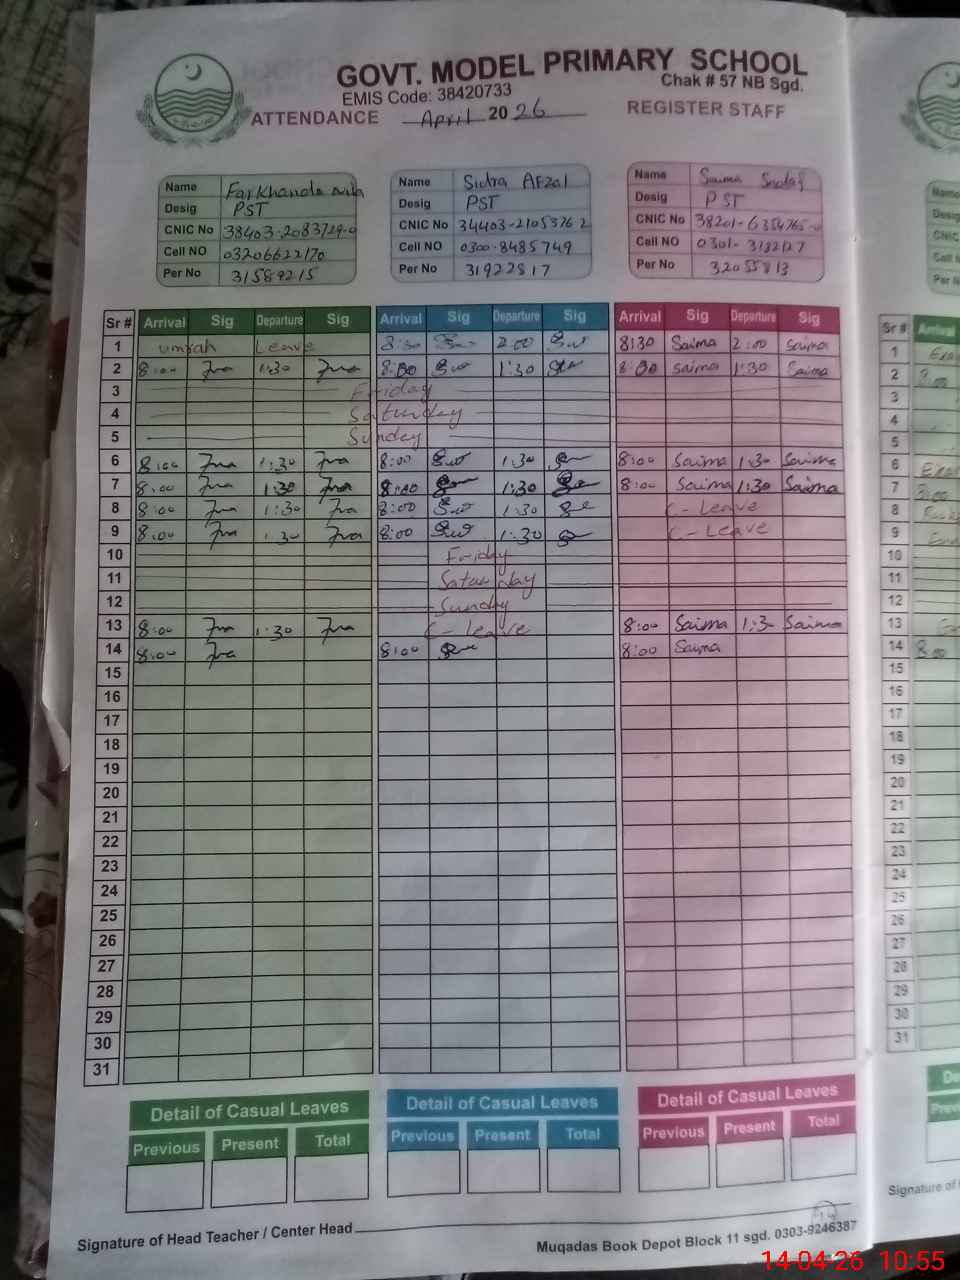 GOVT. MODEL PRIMARY SCHOOL
Chak # 57 NB Sgd.
EMIS Code: 38420733
ATTENDANCE April 2026 REGISTER STAFF
Name Farkhanda
Desig PST
CNIC No 38403-2083729-0
Cell NO 03206622170
Per No 31589215
Name Sidra Afzal
Desig PST
CNIC No 34403-2105376 2
Cell NO 0300-8485749
Per No 31922817
Name Saima Sadaf
Desig PST
CNIC No 38201-6354765-0
Cell NO 0301-3182127
Per No 32055813
Sr # Arrival Sig Departure Sig Arrival Sig Departure Sig Arrival Sig Departure Sig
1 umrah Leave 8:30 2:00 8:30 Saima 2:00 Saima
2 8:00 1:30 8:00 1:30 8:00 Saima 1:30 Saima
3 Friday
4 Saturday
5 Sunday
6 8:00 1:30 8:00 1:30 8:00 Saima 1:30 Saima
7 8:00 1:30 8:00 1:30 8:00 Saima 1:30 Saima
8 8:00 1:30 8:00 1:30 C-Leave
9 8:00 1:30 8:00 1:30 C-Leave
10 Friday
11 Saturday
12 Sunday
13 8:00 1:30 C-leave 8:00 Saima 1:3 Saima
14 8:00 8:00 8:00 Saima
15
16
17
18
19
20
21
22
23
24
25
26
27
28
29
30
31
Detail of Casual Leaves Detail of Casual Leaves Detail of Casual Leaves
Previous Present Total Previous Present Total Previous Present Total
Signature of Head Teacher / Center Head
Muqadas Book Depot Block 11 sgd. 0303-9246387
Sr # Arrival
1
2 8:00
3
4
5
6
7 8:00
8
9
10
11
12
13
14 8:00
15
16
17
18
19
20
21
22
23
24
25
26
27
28
29
30
31
Signature of
14-04-26 10:55